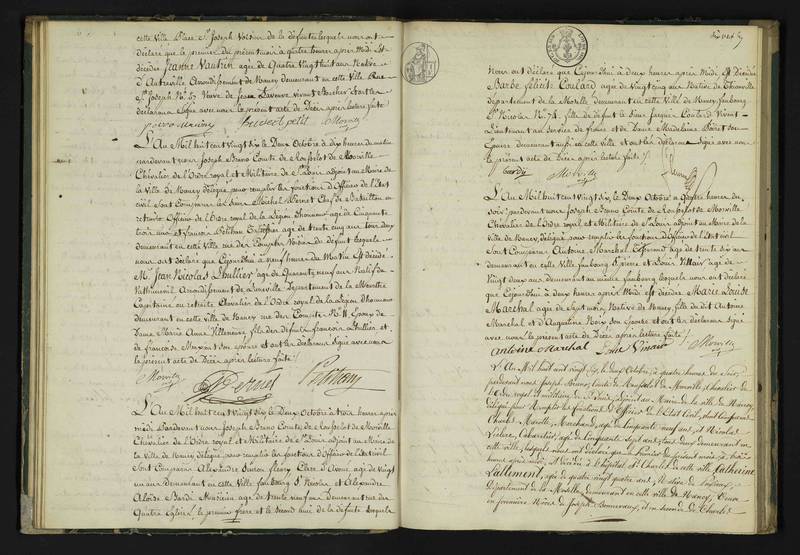 cette Ville Place St Joseph Voisin de la défunte lesquels nous ont
déclaré que le premier du présent mois à quatre heures après Midi Est
décédée Jeanne Vautrin agée de Quatre Vingt huit ans Native
d'Autreville Arrondissement de Nancy demeurant en cette Ville Rue
St Joseph No 57 Veuve de Jean vivant
déclarans signé avec nous le présent acte de Décès après lecture faite
Morville
L'An Mil huit cent Vingt Six le Deux Octobre à dix heures du matin
pardevant nous Joseph Bruno Comte de Rousselot de Morville
Chevalier de l'Ordre royal et Militaire de St Louis adjoint au Maire de
la Ville de Nancy délégué pour remplir les fonctions d'Officier de l'Etat
civil sont Comparus les Sieurs Michel Pernet Chef de Bataillon en
retraite Officier de l'Ordre royal de la Légion d'honneur agé de Cinquante
trois ans et François agé de trente cinq ans tous deux
demeurant en cette Ville rue des Voisins du défunt lesquels
nous ont déclaré que Cejourd'hui à neuf heures du Matin Est décédé
Mr Jean Nicolas Lhullier agé de Quarante neuf ans Natif de
Vathimenil Arrondissement de Lunéville Département de la Meurthe
Capitaine en retraite Chevalier de l'Ordre royal de la Légion d'honneur
demeurant en cette Ville de Nancy rue des No 11 Epoux de
Dame Marie Anne Villeneuve fils des défunts François Lhullier et
de Françoise son épouse et ont les déclarans signé avec nous
le présent acte de Décès après lecture faite
Morville Pernet
L'An Mil huit cent Vingt Six le Deux Octobre à trois heures après
midi Pardevant nous Joseph Bruno Comte de Rousselot de Morville
Chevalier de l'Ordre royal et Militaire de St Louis adjoint au Maire de
la Ville de Nancy délégué pour remplir les fonctions d'Officier de l'Etat civil
Sont Comparus Alexandre Simon Fleury Clerc d'Avoué agé de vingt
un ans demeurant en cette Ville faubourg St Nicolas et Alexandre
Bardy Musicien agé de trente neuf ans Demeurant rue des
Quatre Eglises, le premier frère et le second ami de la défunte Lesquels
nous ont déclaré que Cejourd'hui à deux heures après Midi Est décédée
Barbe Félicité Coulard, agée de vingt cinq ans Native de Thionville
département de la Moselle demeurant en cette Ville de Nancy faubourg
St Nicolas No 74, fille de défunt le Sieur Jacques Coulard Vivant
Lieutenant au Service de france et de Dame Madelaine son
Epouse demeurant aussi en cette Ville et ont les déclarans signé avec nous
le présent acte de Décès après lecture faite
Bardy Morville Fleury
L'An Mil huit cent Vingt Six, le Deux Octobre à Quatre heures du
soir pardevant nous Joseph Bruno Comte de Rousselot de Morville
Chevalier de l'Ordre royal et Militaire de St Louis adjoint au Maire de la
Ville de Nancy, délégué pour remplir les fonctions d'Officier de l'Etat civil
Sont Comparus Antoine Marchal agé de trente six ans
demeurant en cette Ville faubourg St Pierre et Louis agé de
Vingt deux ans demeurant au même faubourg lesquels nous ont déclaré
que Cejourd'hui à deux heures après Midi Est décédée Marie Louise
Marchal agée de Sept mois, Native de Nancy, fille du dit Antoine
Marchal et d'Augustine Noir son Epouse et ont les déclarans signé
avec nous le présent acte de Décès après lecture faite
Antoine Marchal Louis Morville
L'An Mil huit cent vingt Six, le deux Octobre, à quatre heures du soir,
pardevant nous Joseph Bruno, Comte de Rousselot de Morville, Chevalier de
l'Ordre royal et militaire de St Louis, adjoint au Maire de la ville de Nancy,
délégué pour remplir les fonctions d'Officier de l'Etat Civil, sont Comparus
Charles Marchand, agé de Cinquante neuf ans, et Nicolas
Leclerc, Cabaretier, agé de Cinquante Sept ans, tous deux demeurant en
cette ville, lesquels nous ont déclaré que le premier du présent mois, à
heures après midi, est décédée à l'hôpital St Charles de cette ville Catherine
Lallement, agée de vingt quatre ans, Native de
Département de la Moselle, demeurant en cette ville de Nancy, Veuve
en premières Noces de Joseph et en seconde de Charles